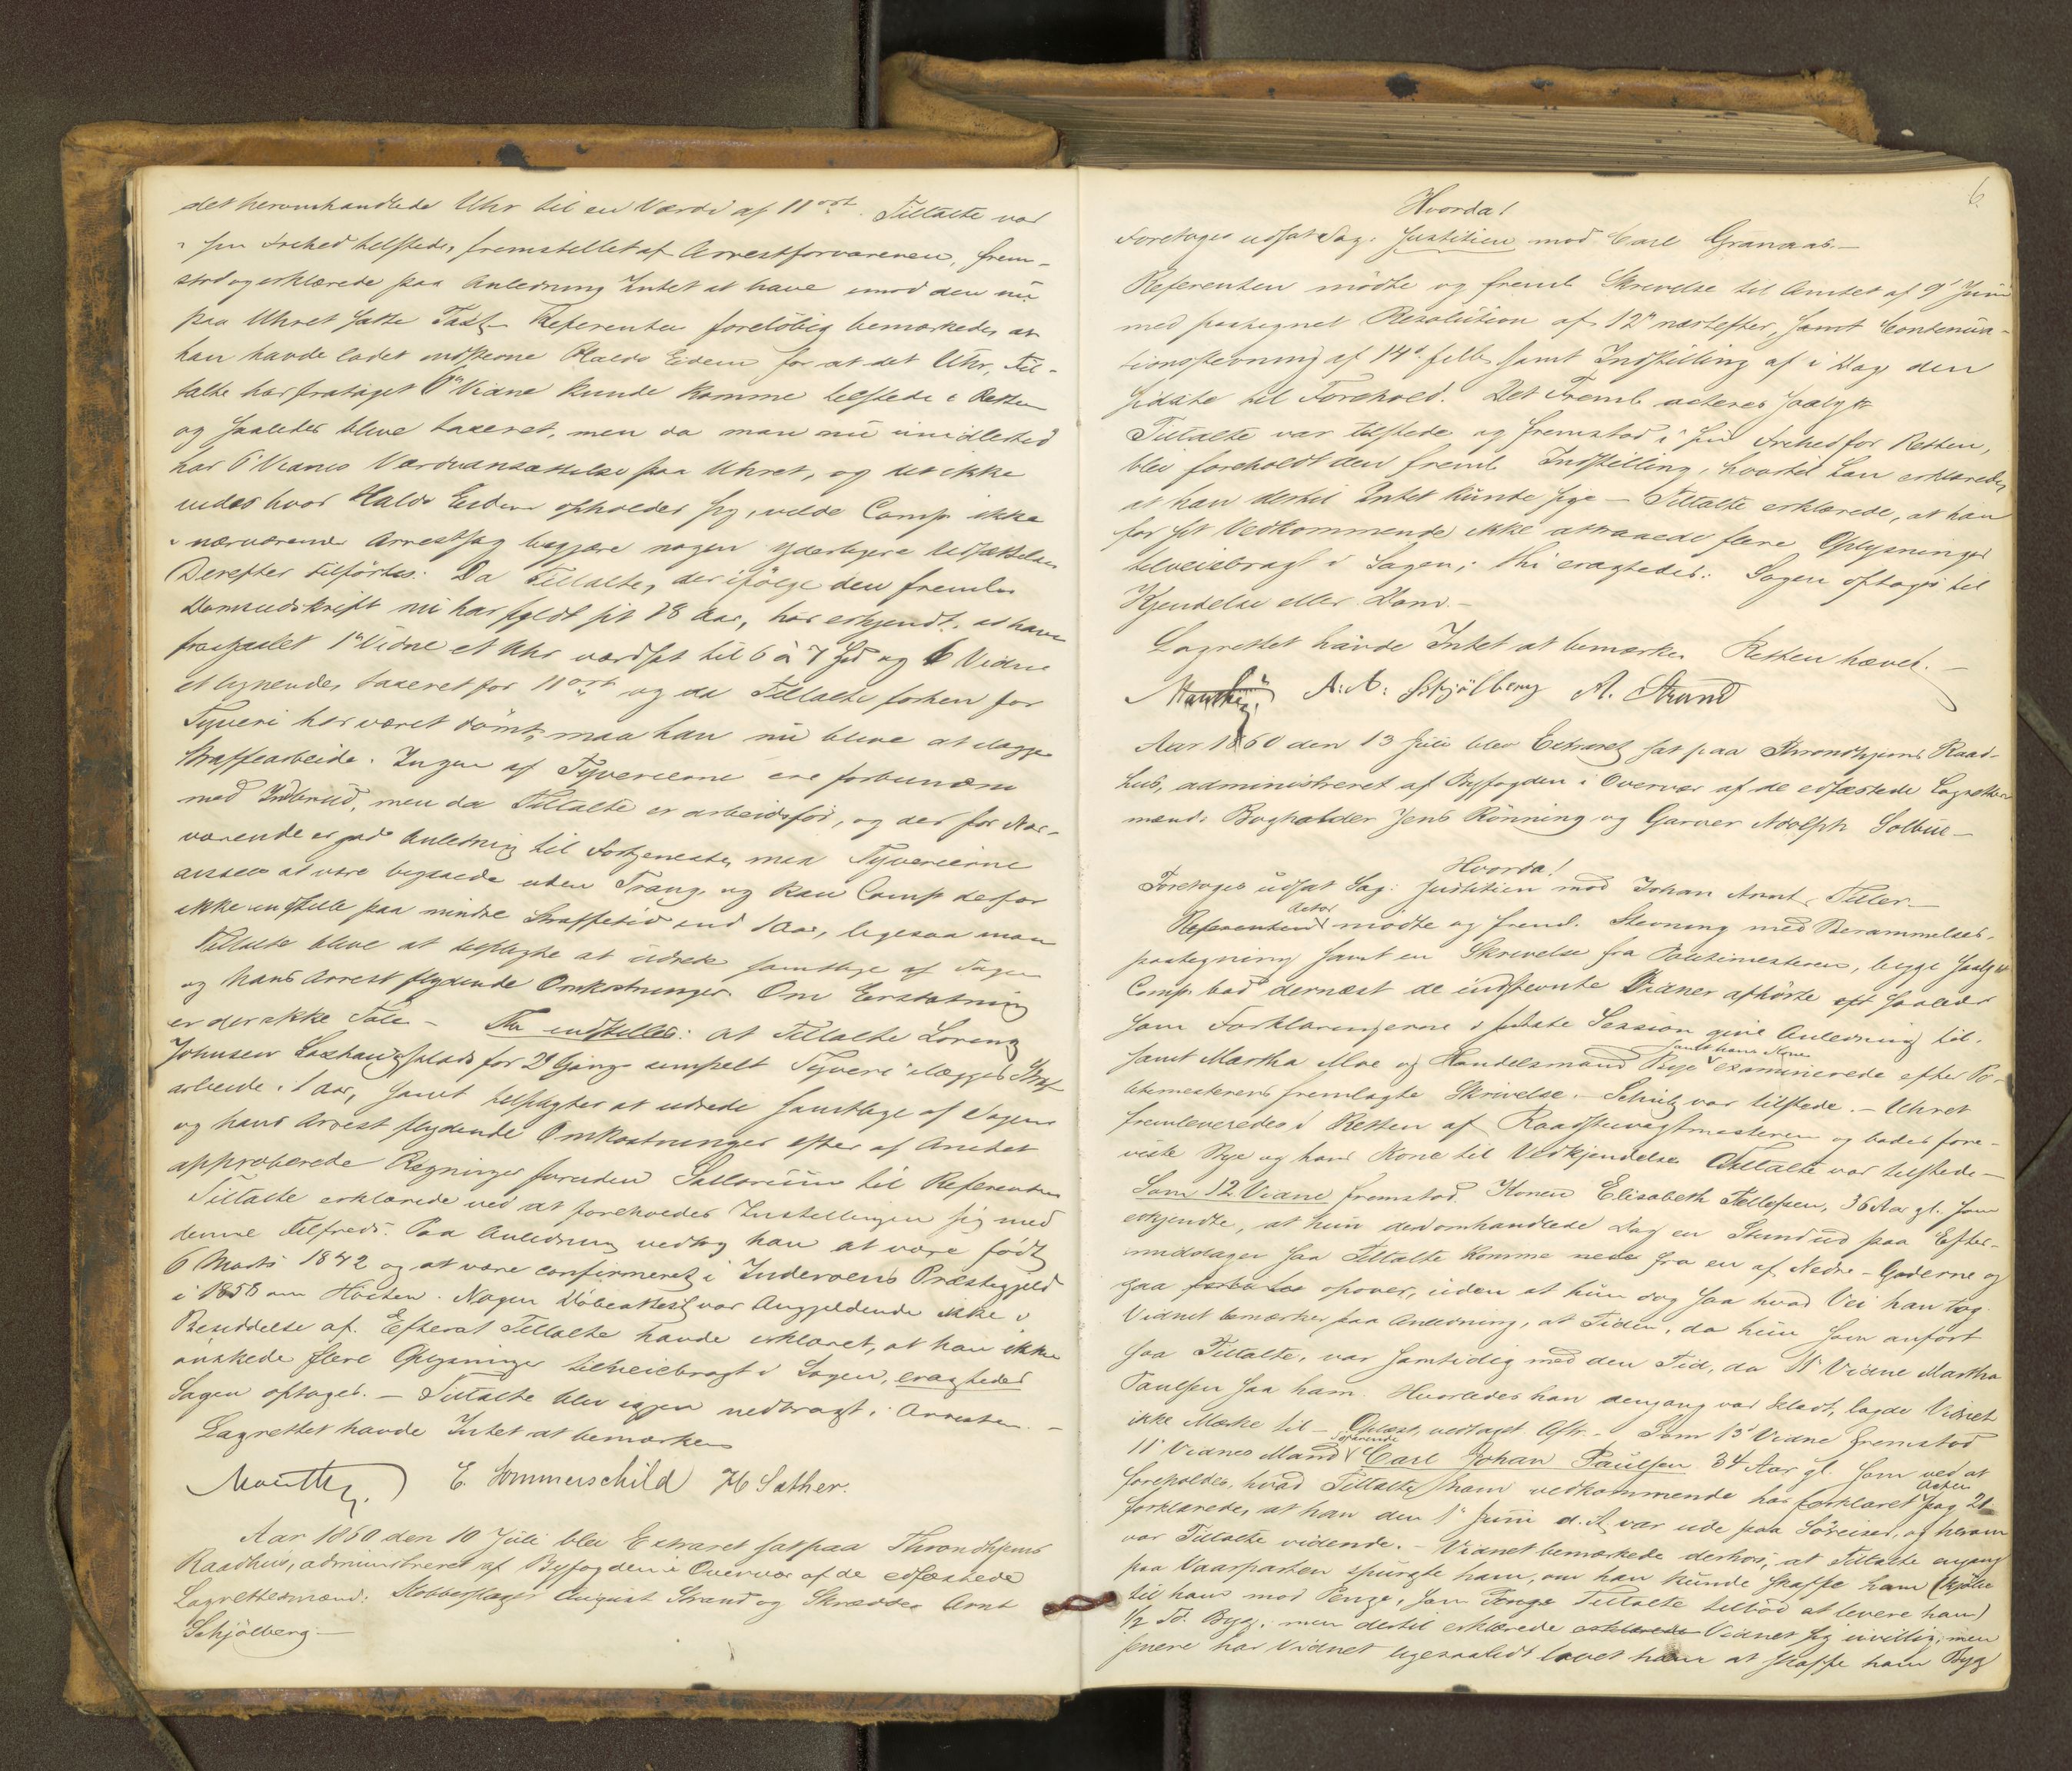 det heromhandlede Uhr til en Værdi af 11 ort. Tiltalte var
i sin Frihed tilstede, fremstillet af Arrestforvareren, frem-
stod og erklærede paa Anledning Intet at have imod den nu
paa Uhret satte Taxt. Referenten foreløbig bemærkede, at
han havde ladet indstevne Haldo Eidem for at det Uhr, Til-
talte har frataget 6te Vidne kunde komme tilstede i Retten
og saaledes blive taxeret, men da man nu imidlertid
har 6te Vidnes Værdiansættelse paa Uhret, og det ikke
vides hvor Haldo Eidem opholder sig, vilde Comp. ikke
i nærværende Arrestsag begjære nogen yderligere Udsættelse
Derefter tilførtes: Da Tiltalte, der ifølge den fremlagte
Domsudskrift nu har fyldt sit 18 Aar, har erkjendt at have
frastjaalet 1ste Vidne et Uhr værdsat til 6 à 7 Spd og 6 Vidne
et lignende, taxeret for 11 ort og da Tiltalte forhen for
Tyveri har været dømt, maa han nu blive at ilægge
Straffearbeide. Ingen af Tyverierne ere forbundne
med Indbrud, men da Tiltalte er arbeidsfør, og der for Nær-
værende er god Anledning til Fortjeneste, maa Tyverierne
ansees at være begaaede uden Trang, og kan Comp. derfor
ikke indstille paa mindre Straffetid end 1 Aar, ligesaa maa
Tiltalte blive at tilpligte at udrede samtlige af Sagen
og hans Arrest flydende Omkostninger. Om Erstatning
er der ikke Tale. – Thi indstilles: at Tiltalte Lorentz
Johnsen for 2d Gang simpelt Tyveri ilægges Straf-
arbeide i 1 Aar, samt tilpligtes at udrede samtlige af Sagen
og hans Arrest flydende Omkostninger efter af Amtet
approberede Regninger foruden Sallarium til Referenten
Tiltalte erklærede ved at foreholdes Indstillingen sig med
denne tilfreds. Paa Anledning vedtog han at være født
6 Marts 1842 og at være confirmeret i Inderøens Præstegjeld
i 1858 om Høsten. Nogen Døbeattest var Angjeldende ikke i
Besiddelse af. Efterat Tiltalte havde erklæret, at han ikke
ønskede flere Oplysninger tilveiebragt i Sagen, eragtedes
Sagen optaget. – Tiltalte blev igjen nedbragt i Arresten. –
Lagrettet havde Intet at bemærke
E. Sommerschild H Sather.
Aar 1860 den 10 Juli blev Extraret sat paa Throndhjems
Raadhus, administreret af Byfogden i Overvær af de edfæstede
Lagrettesmænd: Kobberslager August Strand og Skrædder Arnt
Schjölberg –
6.
Hvorda!
Foretages udsat Sag: Justitien mod Carl Granaas. –
Referenten mödte og freml. Skrivelse til Amtet af 9de Juni
med paategnet Resolution af 12te næstefter, samt Continua-
tionsstevning af 14de s. M. samt Indstilling af i Dag, den
sidste til Forehold. Det Freml. acteres saalydende
Tiltalte var tilstede og fremstod i sin Frihed for Retten,
blev foreholdt den freml. Indstilling, hvortil han erklærede,
at han dertil Intet kunde sige – Tiltalte erklærede, at han
for sit Vedkommende ikke attraaede flere Oplysninger
tilveiebragt i Sagen; thi eragtedes: Sagen optages til
Kjendelse eller Dom. –
Lagrettet havde Intet at bemærke. Retten hævet. –
A: A: Schjölberg A. Strand
Aar 1860 den 13 Juli blev Extraret sat paa Throndhjems Raad-
hus, administreret af Byfogden i Overvær af de edfæstede Lagrettes-
mænd: Bogholder Jens Rönning og Garver Adolph Solbue –
Hvorda!
Foretages udsat Sag: Justitien mod Johan Arnt Tiller. –
Referenten Actor mödte og freml. Stevning med Berammelses-
paategning samt en Skrivelse fra Politimesteren, begge saalydende
Comp. bad dernæst de indstevnte Vidner afhörte saaledes
som Forklaringerne i sidste Session give Anledning til,
samt Martha Moe og Handelsmand Bye samt hans Kone examinerede efter Po-
litimesterens fremlagte Skrivelse. – Schultz var tilstede. – Uhret
fremleveredes i Retten af Raadstuvagtmesteren og bades fore-
viste Bye og hans Kone til Vedkjendelse. Tiltalte var tilstede –
Som 12 Vidne fremstod Konen Elisabeth Tellefsen, 36 Aar gl. som
erkjendte, at hun den omhandlede Dag en Stund ud paa Efter-
middagen saa Tiltalte komme nede fra en af Nedre-Gaderne og
gaa opover, uden at hun dog saa hvad Vei han tog.
Vidnet bemærker paa Anledning, at Tiden, da hun som anført
saa Tiltalte, var samtidig med den Tid, da 11te Vidne Martha
Paulsen saa ham. Hvorledes han dengang var klædt, lagde Vidnet
ikke Mærke til – Oplæst, vedtaget. Aftr. – Som 13de Vidne fremstod
11te Vidnes Mand Söfarende Carl Johan Paulsen 34 Aar gl. som ved at
foreholdes, hvad Tiltalte ham vedkommende har forklaret Acten pag 21
forklarede, at han den 1ste Juni d. A. var ude paa Söreiser, og herom
var Tiltalte vidende. – Vidnet bemærkede derhos, at Tiltalte engang
paa Vaarparten spurgte ham, om han kunde skaffe ham (kjöbe
til ham mod Penge, som Tiltalte tilböd at levere ham)
1/2 Td. Byg, men dertil erklærede erklærede Vidnet sig uvillig; men
senere har Vidnet ligesaalidt lovet ham at skaffe ham Byg